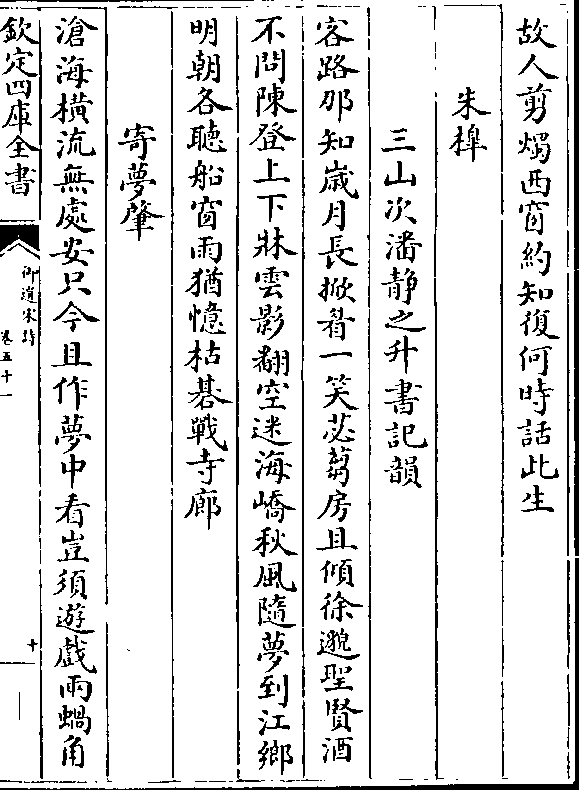 故人剪燭西窗約知復何時話此生
朱槹
三山次潘静之升書記韻
客路那知嵗月長掀髯一笑苾蒭房且傾徐邈聖賢酒
不問陳登上下牀雲影翻空迷海嶠秋風隨夢到江鄉
明朝各聽船窗雨猶憶枯棊戰寺廊
寄夢肇
滄海橫流無處安只今且作夢中看豈須遊戲兩蝸角
欽定四庫全書
御選宋詩
卷五十一
十